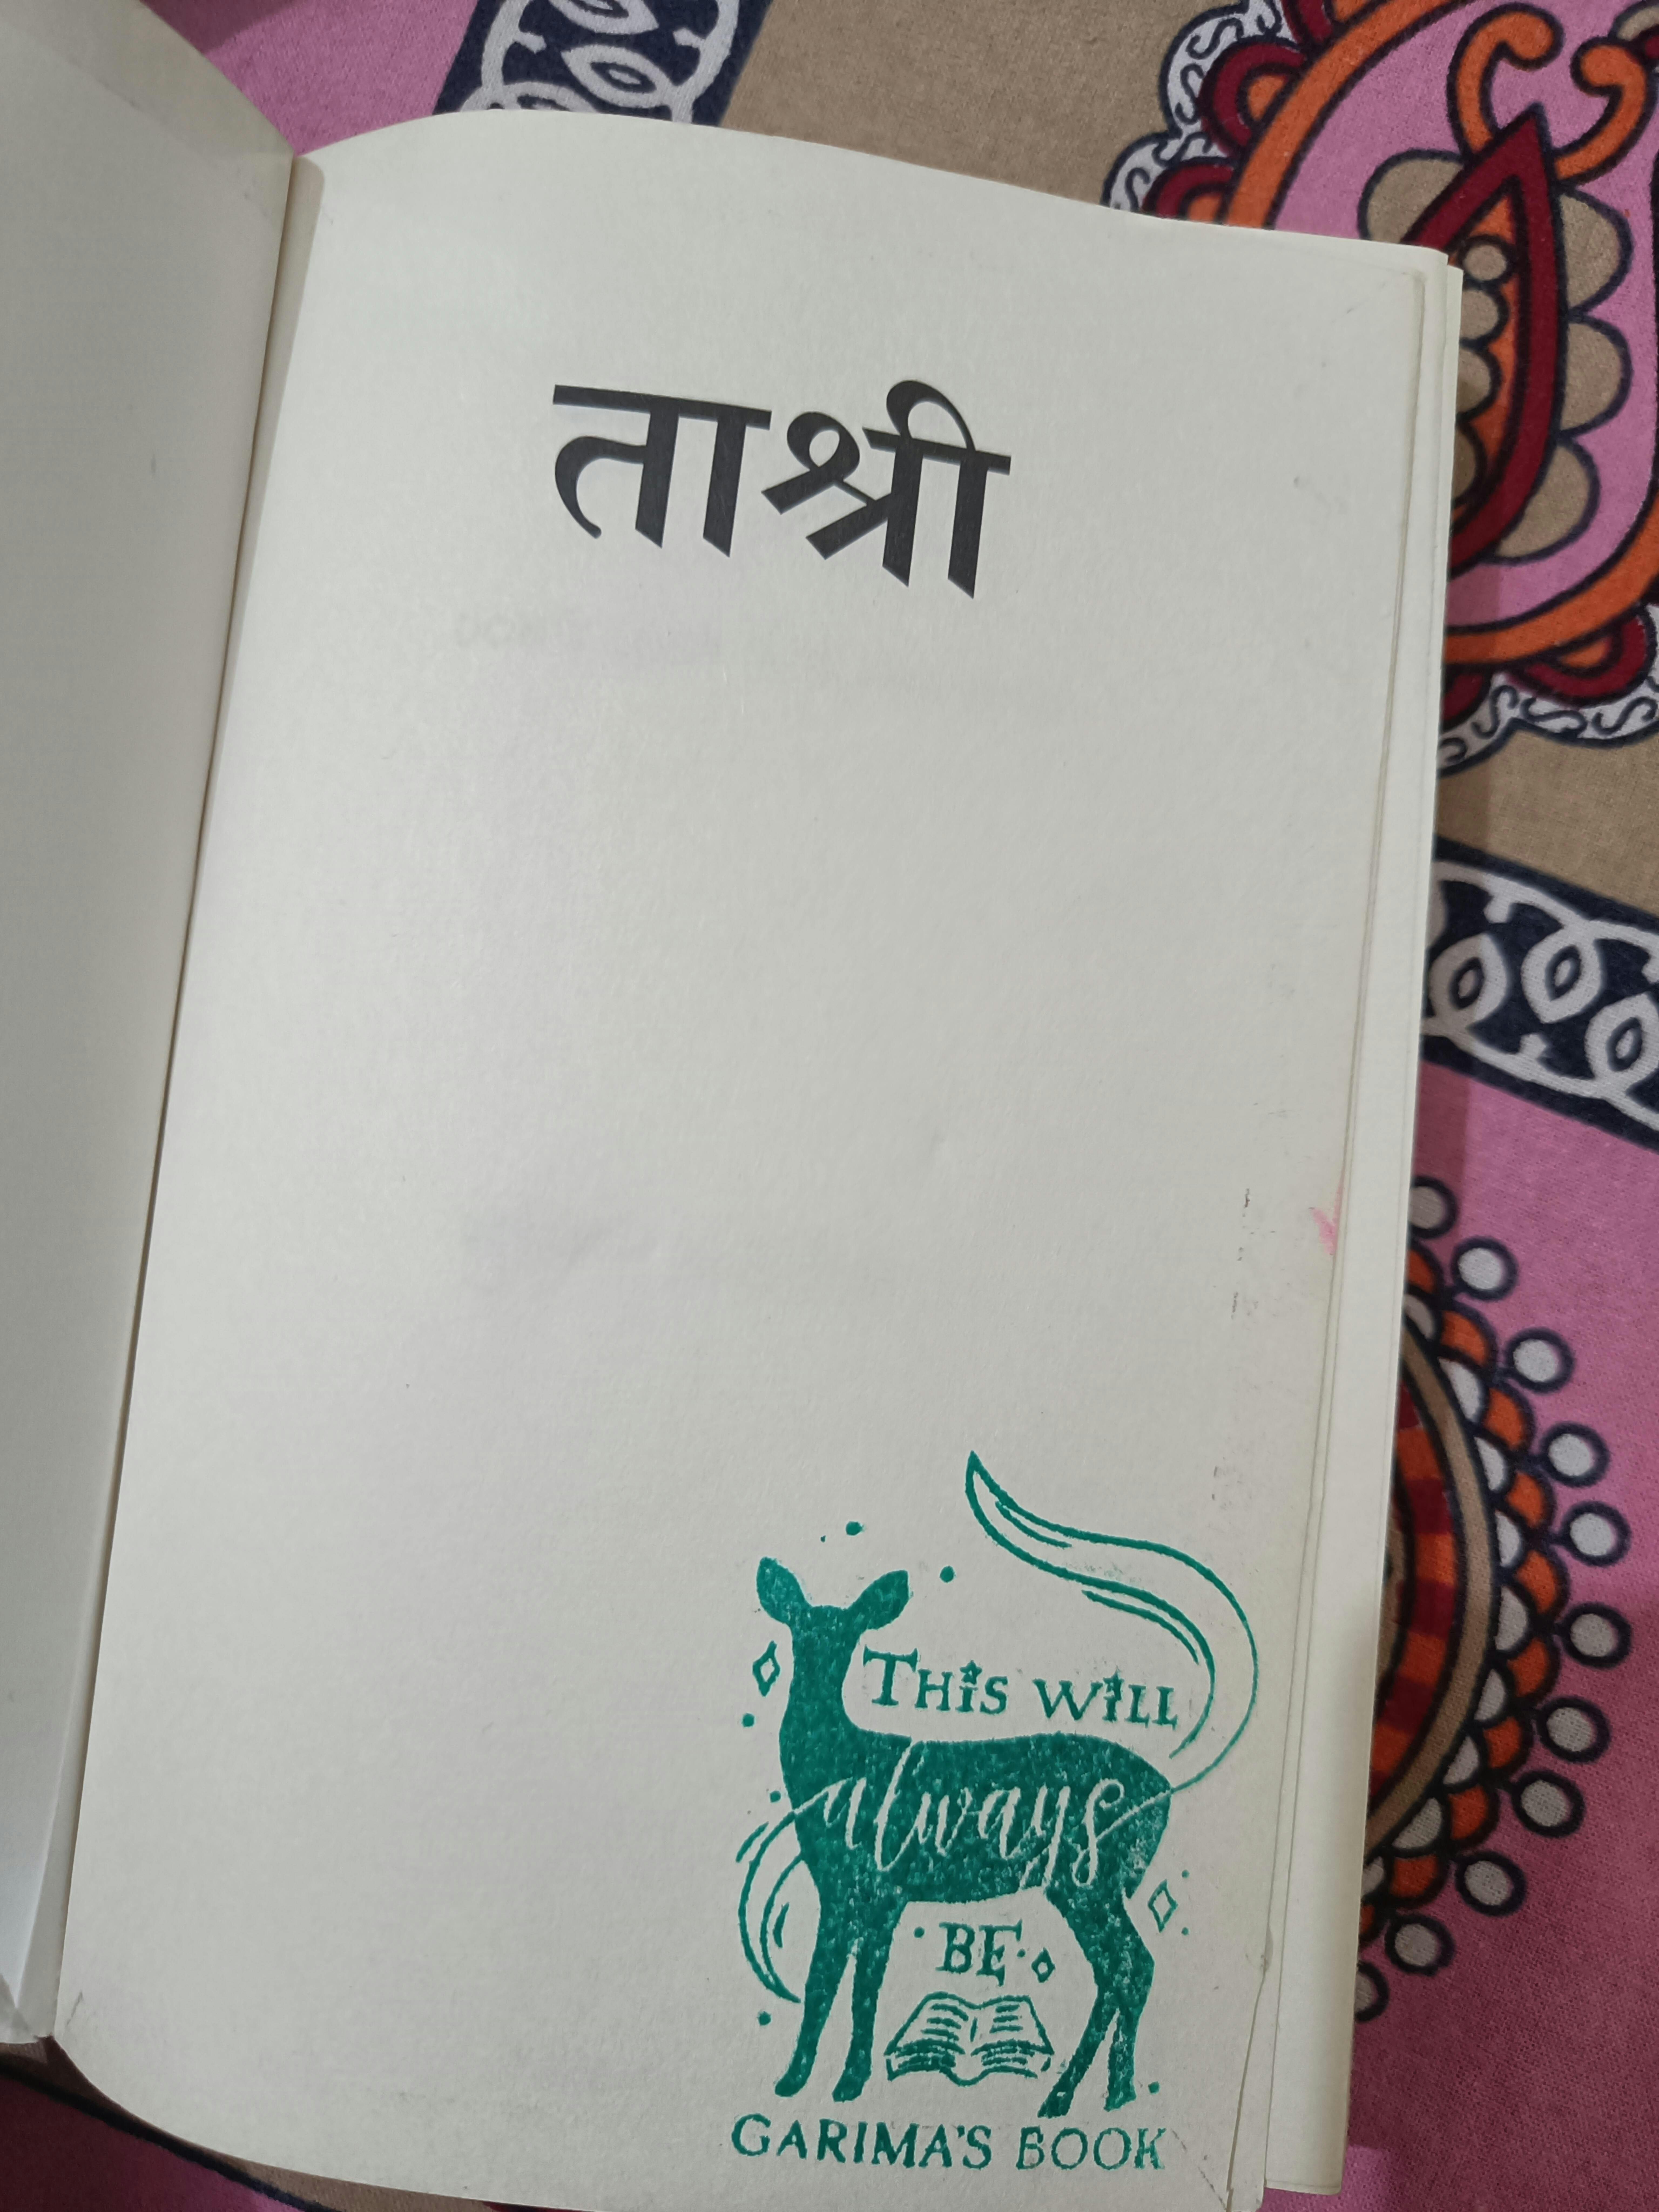 ताश्री
THIS WILL
always
BE
GARIMA'S BOOK